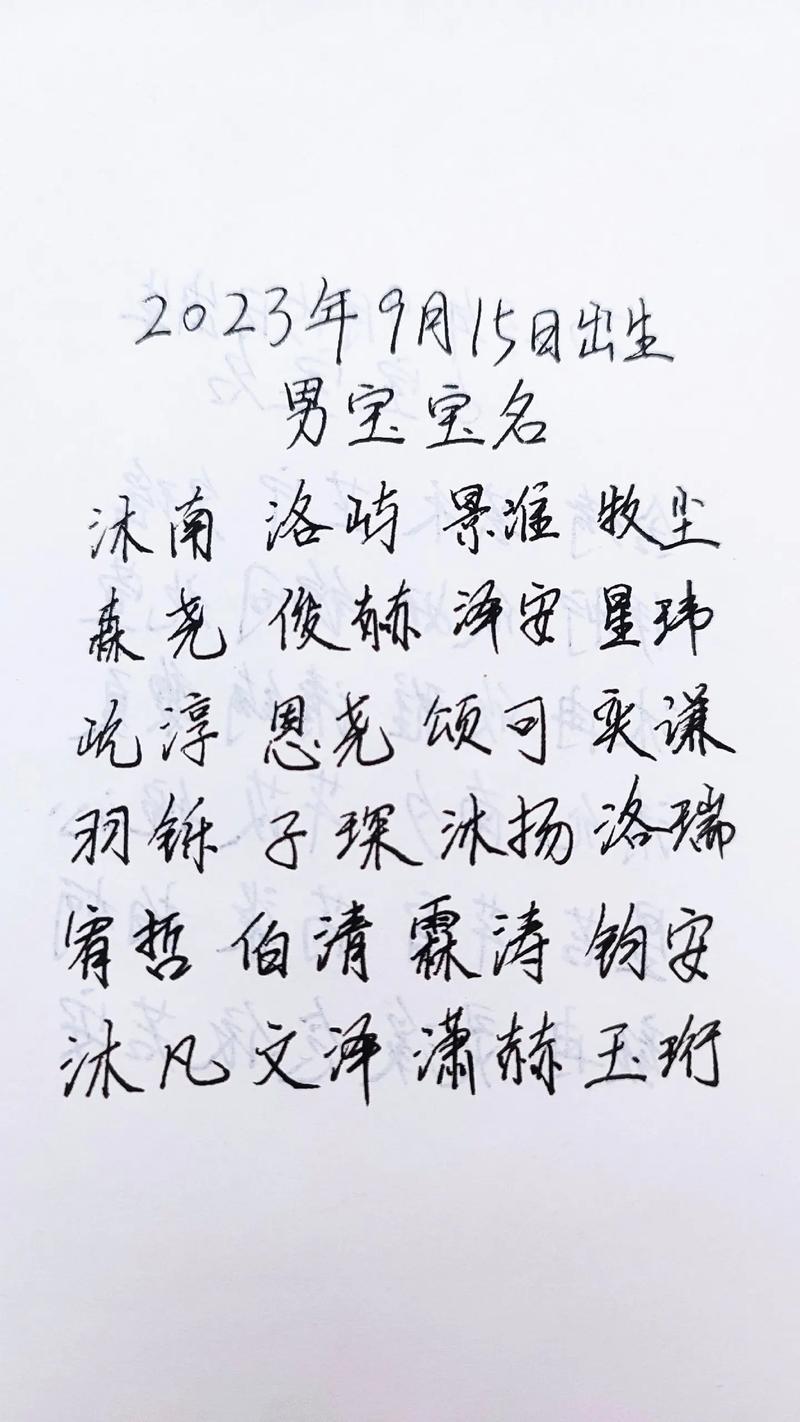 2023年9月15日出生
男宝宝名
沐南 洛屿 景淮 牧尘
森尧 俊赫 泽安 星玮
屹淳 恩尧 颂可 奕谦
羽铄 子琛 沐扬 洛瑞
宥哲 伯清 霖涛 钧安
沐凡 文泽 潇赫 玉珩